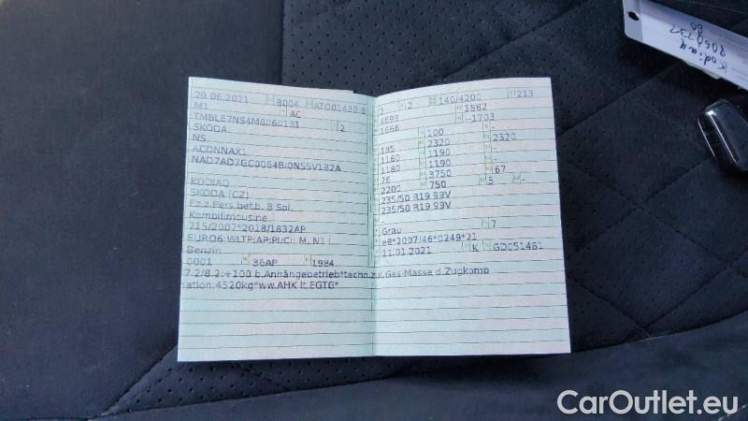 28.06.2021 8004 ATO01420 6
M1 AC
TMBLE7NS4M8060131 2
SKODA
NS
ACDNNAX1
NAD7AD7GC0054BI0NSSV182A
KODIAQ
SKODA (CZ)
Fz.z.Pers.bef.b. 8 Spl.
Kombilimousine
715/2007*2018/1832AP
EURO6;WLTP;AP;PI/CI; M, N1 I
Benzin
0001 36AP 1984
7.2/8.2:+100 b.Anhängebetrieb*techn.zul.Ges-Masse d.Zugkomb
ination:4520kg*ww.AHK lt.EGTG*
2 140/4200 213
4699 1882
1666 -1703
100 -
195 2320 2320
1160 1190 -
1180 1190 -
26 3750 67
2200 750 5 -
235/50 R19 99V
235/50 R19 99V
-
Grau 7
e8*2007/46*0249*21
11.01.2021 K GD051461
Kodiaq
CarOutlet.eu